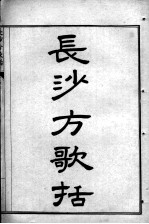 長沙方歌括